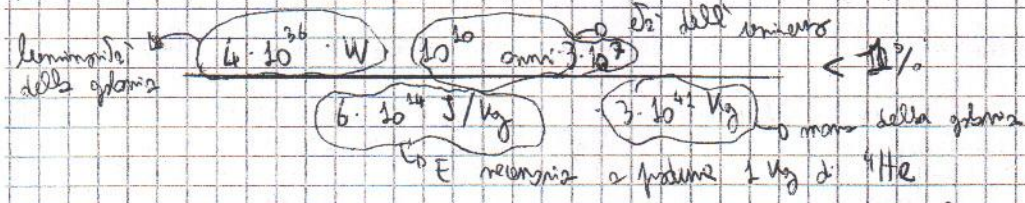 luminosità della galassia
4 · 10^36 · W   10^10 anni · 3 · 10^7   età dell'universo
< 1%
6 · 10^14 J/kg · 3 · 10^41 kg   massa della galassia
E necessaria a produrre 1 kg di ^4He